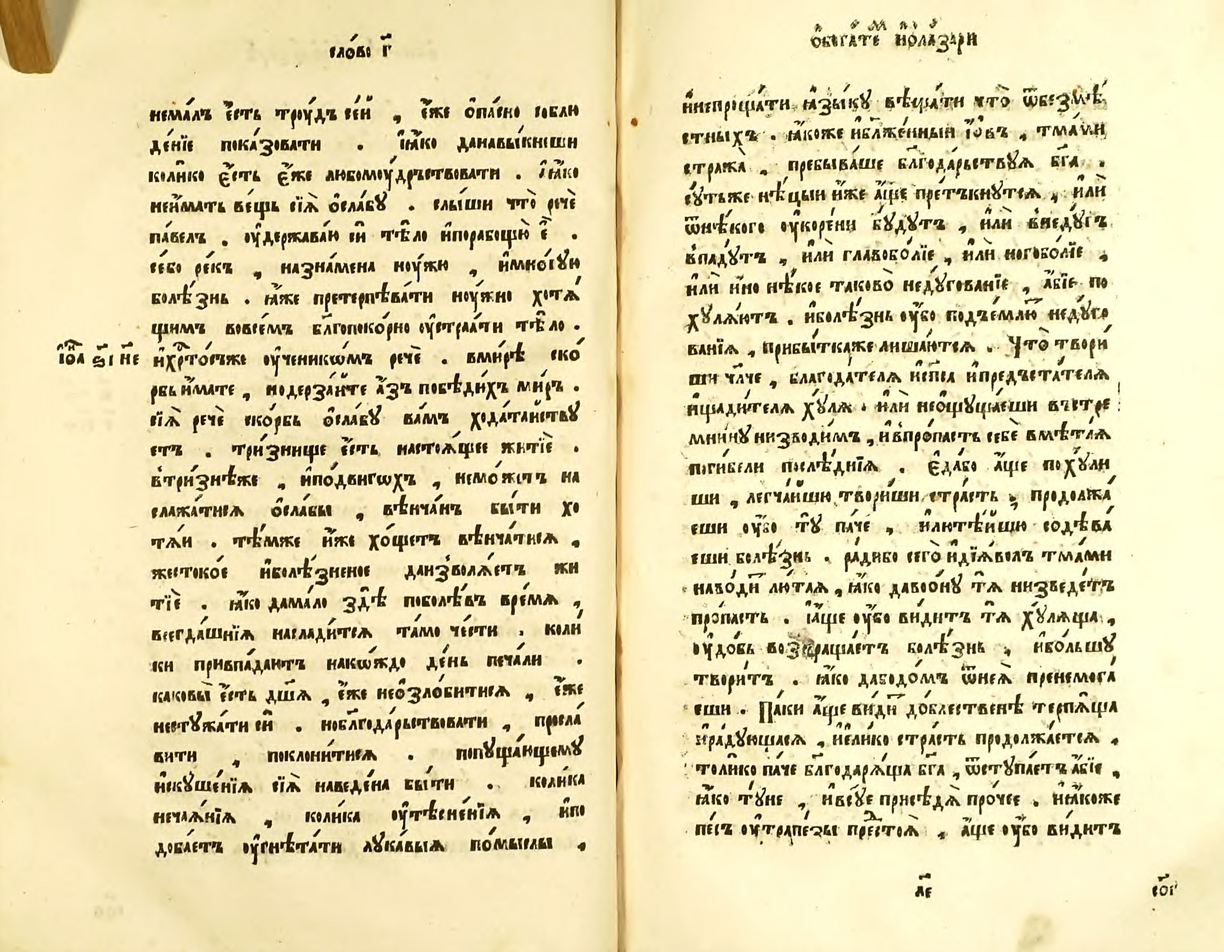 сло́во г҃
немалъ є҆́сть трꙋ́дъ се́й , є҆́же ѻ҆па́сно соблю
де́нїе показова́ти . ꙗ҆́ко данавы́кнꙋши
коли́ко є҆́сть є҆́же любомоу́дръствовати . ꙗ҆́ко
неи҆́мать ве́щь сїѧ̀ ѻ҆сла́бꙋ . слы́ши что̀ речѐ
па́велъ . оу҆держава́ю си́ тѣ́ло и҆порабоща́ю є҆̀ .
се́бо ре́къ , назна́мена ноу́жю , и҆мно́гꙋю
болѣ́знь . ꙗ҆́же претерпѣва́ти ноу́жно хотѧ́
щимъ вовсе́мъ бл҃гопоко́рно оу҆страѧ́ти тѣ́ло .
і҆ѡа ѕ҃і н҃е
и҆хрⷭ҇то́съже оу҆ченикѡ́мъ речѐ . вми́рѣ ско́
рбь и҆́мате , нодерза́йте а҆́зъ побѣди́хъ ми́ръ .
сїѧ̀ речѐ ско́рбь ѻ҆сла́бꙋ ва́мъ хода́тайствꙋ
етъ . три́знище є҆́сть настоѧ́щее житїѐ .
втри́знѣже , и҆по́двигѡхъ , немо́жетъ на
слажа́тисѧ ѻ҆сла́бы , вѣнча́нъ бы́ти хо
тѧ́и . тѣ́мже и҆́же хо́щетъ вѣнча́тисѧ ,
жесто́кое и҆болѣ́зненое даизволѧ́етъ жи
тїѐ . ꙗ҆́ко дама́ло здѣ̀ поболѣ́въ вре́мѧ ,
всегда́шнїѧ наслади́тсѧ та́мо че́сти . коли́
ки привпада́ютъ нако́ждо де́нь печа́ли .
каковы̀ є҆́сть дш҃а̀ , є҆́же неѡ҆зло́битисѧ , є҆́же
нестꙋжа́ти си́ . нобл҃года́рьствовати , просла́
вити , поклони́тисѧ . попꙋща́ющемꙋ
и҆скꙋше́нїѧ сїѧ̀ наведе́на бы́ти . коли́ка
неча́ѧнїѧ , коли́ка оу҆тѣсне́нїѧ , и҆по
доба́етъ оу҆гнѣта́ти лꙋка́выѧ по́мыслы ,
ѻ҆бога́тѣмъ и҆ѻла́зари
и҆непроща́ти ꙗ҆зы́кꙋ вѣща́ти что̀ ѿбезмѣ́
стныхъ . ꙗ҆́коже и҆бл҃же́нный і҆́ѡвъ , тма́ми
стража̀ , пребыва́ше бл҃года́рьствꙋѧ бг҃а .
сꙋ́тьже нѣ́цыи и҆́же а҆́ще претъкнꙋ́тсѧ , и҆лѝ
ѿнѣ́кого оу҆коре́ни бꙋ́дꙋтъ , и҆лѝ внедꙋ́гъ
впадꙋ́тъ , и҆лѝ главобо́лїе , и҆лѝ ногобо́лїе ,
и҆лѝ и҆́но нѣ́кое таково̀ недꙋ́гованїе , а҆́бїе по
хꙋлѧ́ютъ . и҆болѣ́знь оу҆́бо под̾е́млю недꙋ́го
ванїѧ , прибы́ткаже лиша́ютсѧ . Что̀ твори́
ши чл҃че , благода́телѧ и҆сп҃са и҆предъста́телѧ
и҆щади́телѧ хꙋ́лѧ . и҆лѝ неощꙋща́еши въстре
мни́нꙋ низводи́мъ , и҆впро́пасть себѐ вмѣ́таѧ
поги́бели послѣ́днїѧ . є҆да́бо а҆́ще похꙋ́ли
ши , легча́йши твори́ши стра́сть , продолжа́
еши оу҆́бо тꙋ̀ па́че , и҆лютѣ́йшꙋ содѣва́
еши болѣ́знь . ра́дибо сего̀ и҆дїѧ́волъ тма́ми
наво́дитъ лю́таѧ , ꙗ҆́ко давоо́нꙋ тѧ̀ низведе́тъ
про́пасть . і҆а҆́ще оу҆́бо ви́дитъ тѧ̀ хꙋ́лѧща ,
оу҆до́бь возвраща́етъ болѣ́знь , и҆бо́льшꙋ
твори́тъ . ꙗ҆́ко дабодо́мъ ѿнеѧ̀ пренемога́
еши . Па́ки а҆́ще ви́дитъ до́блественѣ терпѧ́ща
и҆ра́дꙋющасѧ , и҆ели́ко стра́сть продолжа́етсѧ ,
толи́ко па́че бл҃годарѧ́ща бг҃а , ѿстꙋпа́етъ а҆́бїе ,
ꙗ҆́ко тꙋ́не , и҆всꙋ́е присѣдѧ̀ про́чее . и҆ꙗ҆́коже
пе́съ оу҆трапе́зы престоѧ̀ , а҆́ще оу҆́бо ви́дитъ
л҃е